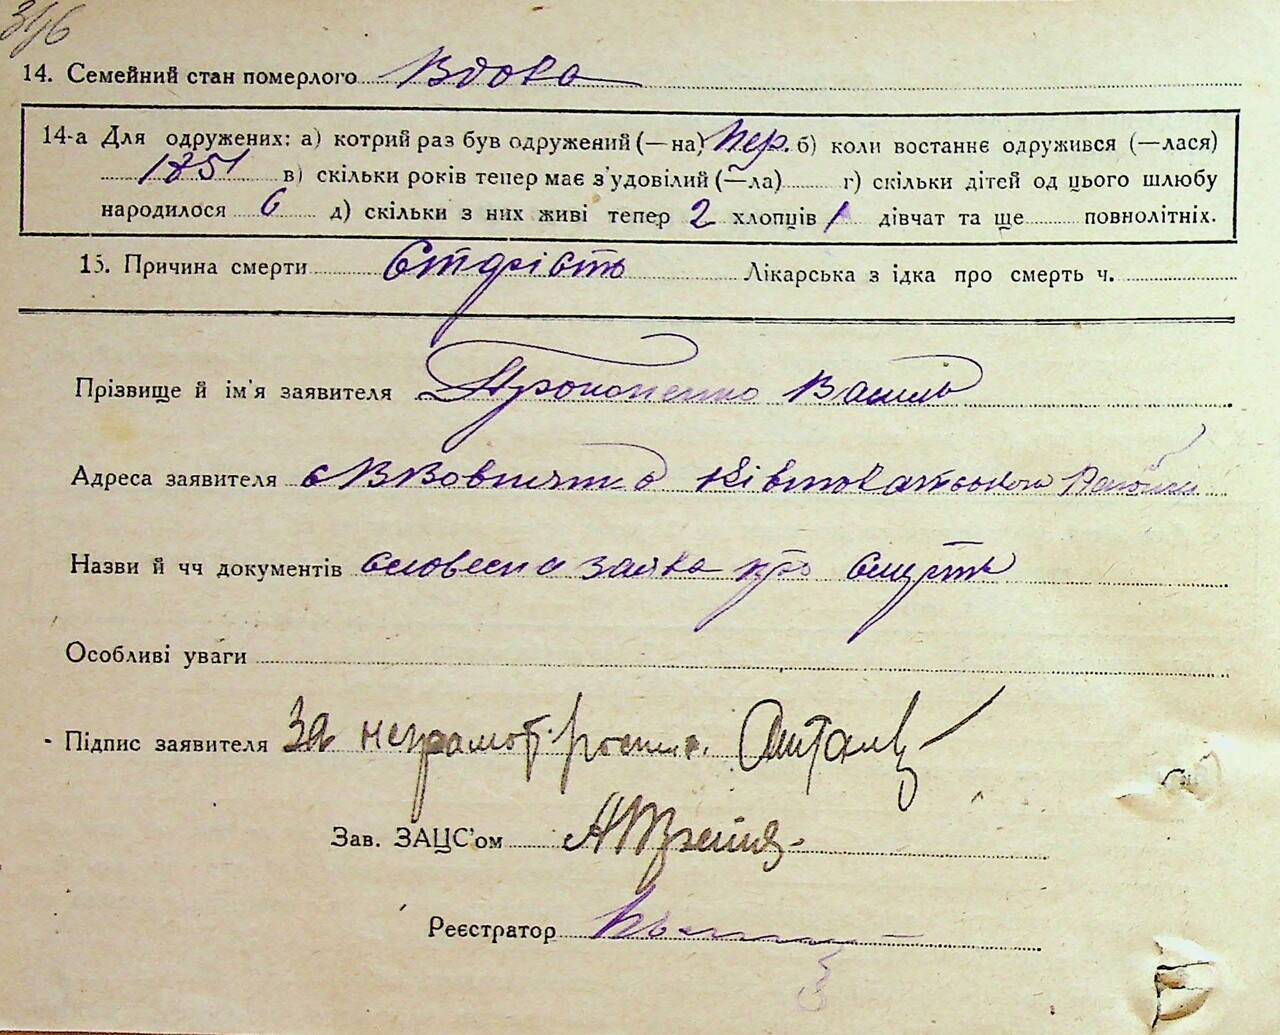 316
14. Семейний стан померлого Вдова
14-а Для одружених: а) котрий раз був одружений (—на) пер. б) коли востаннє одружився (—лася)
1851 в) скільки років тепер має з'удовілий (—ла) г) скільки дітей од цього шлюбу
народилося 6 д) скільки з них живі тепер 2 хлопців 1 дівчат та ще повнолітніх.
15. Причина смерти Старість Лікарська з ідка про смерть ч.
Прізвище й ім'я заявителя Прокопенко Василь
Адреса заявителя с
Назви й чч документів словесна заява про смерть
Особливі уваги
Підпис заявителя За неграмот.
Зав. ЗАЦС'ом
Реєстратор